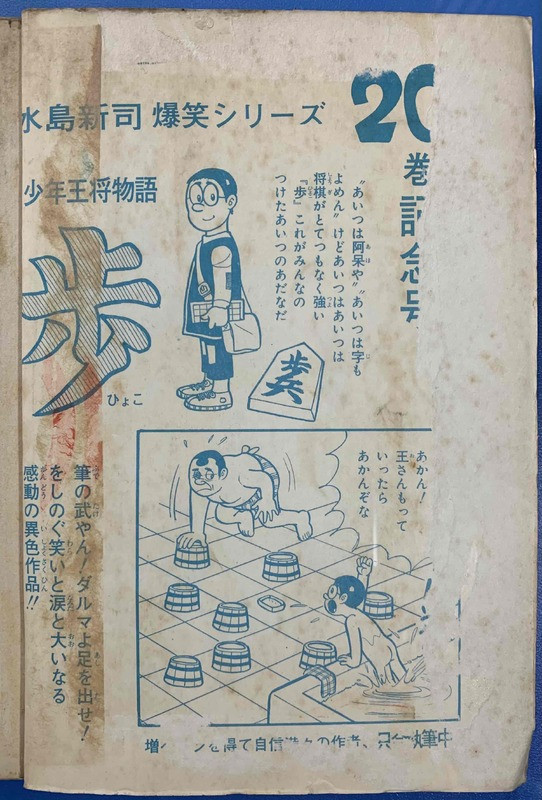 水島新司 爆笑シリーズ
20
巻記念号
少年王将物語
歩
ひょこ
“あいつは阿呆や”“あいつは字も
よめん”けどあいつはあいつは
将棋がとてつもなく強い
『歩』これがみんなの
つけたあいつのあだなだ
歩兵
あかん！
王さんもって
いったら
あかんぞな
筆の武やん！ダルマよ足を出せ！
をしのぐ笑いと涙と大いなる
感動の異色作品!!
を得て自信満々の作者、只今執筆中